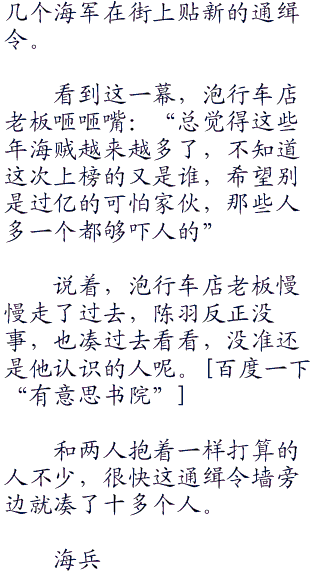 几个海军在街上贴新的通缉
令。
看到这一幕，泡行车店
老板咂咂嘴：“总觉得这些
年海贼越来越多了，不知道
这次上榜的又是谁，希望别
是过亿的可怕家伙，那些人
多一个都够吓人的”
说着，泡行车店老板慢
慢走了过去，陈羽反正没
事，也凑过去看看，没准还
是他认识的人呢。[百度一下
“有意思书院”]
和两人抱着一样打算的
人不少，很快这通缉令墙旁
边就凑了十多个人。
海兵